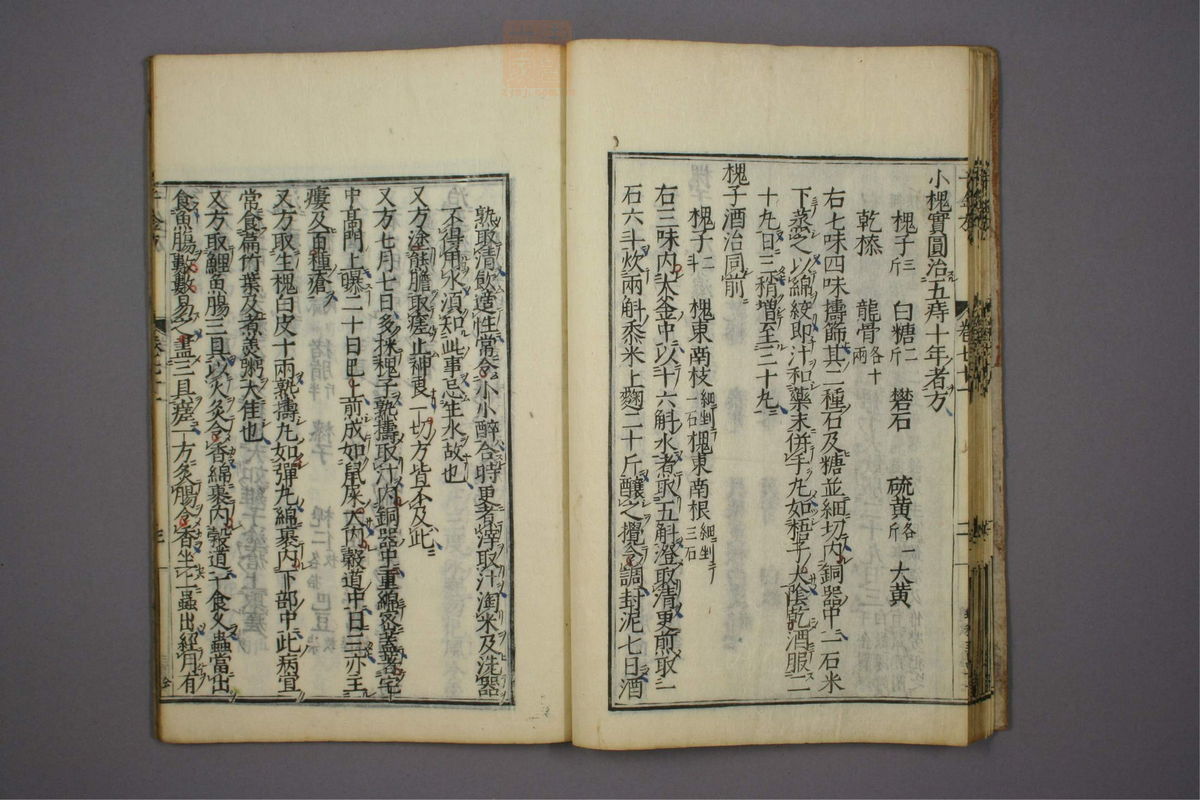 小槐實圓治五痔十年者方
槐子三斤 白糖二斤 礬石 硫黄各一斤 大黄
乾㯃 龍骨各十兩
右七味四味擣篩其二種石及糖並細切内銅器中一石米
下蒸之以綿絞取汁和藥末併手丸如梧子大陰乾酒服二
十丸日三稍増至三十丸
槐子酒治同前
槐子二斗 槐東南枝細剉一石 槐東南根細剉三石
右三味内大釜中以十六斛水煮取五斛澄取清更煎取一
石六斗炊兩斛黍米上麴二十斤釀之攪令調封泥七日酒
熟取清飲適性常令小小醉合時更煮滓取汁淘米及洗器
不得用水須知此事忌生水故也
又方塗熊膽取瘥止神良一切方皆不及此
又方七月七日多採槐子熟擣取汁内銅器中重綿密蓋著宅
中高門上曝二十日巳上煎成如鼠屎大内穀道中日三亦主
瘻及百種瘡
又方取生槐白皮十兩熟擣丸如彈丸綿裹内下部中此病宜
常食萹竹葉及煮羮粥大佳也
又方取鯉魚腸三具以火炙令香綿裹内穀道一食久蟲當出
食魚腸數數易之盡三具瘥一方炙腸令香坐上蟲出經月有